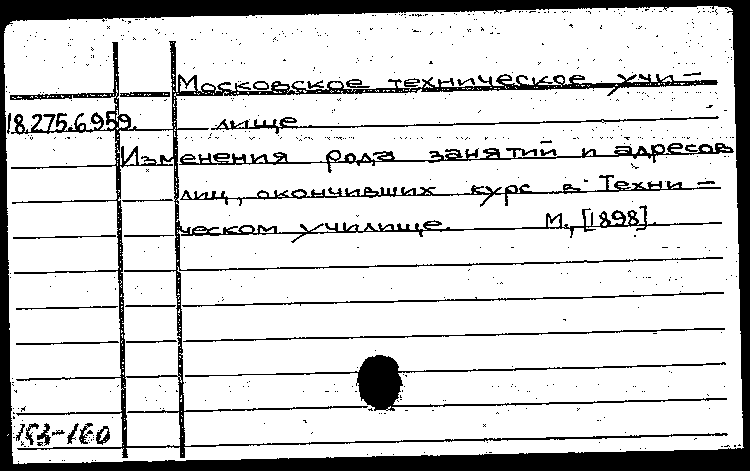 Московское техническое учи-
18.275.6.959. лище
Изменения рода занятий и адресов
лиц, окончивших курс в Техни-
ческом училище. М., [1898].
153-160